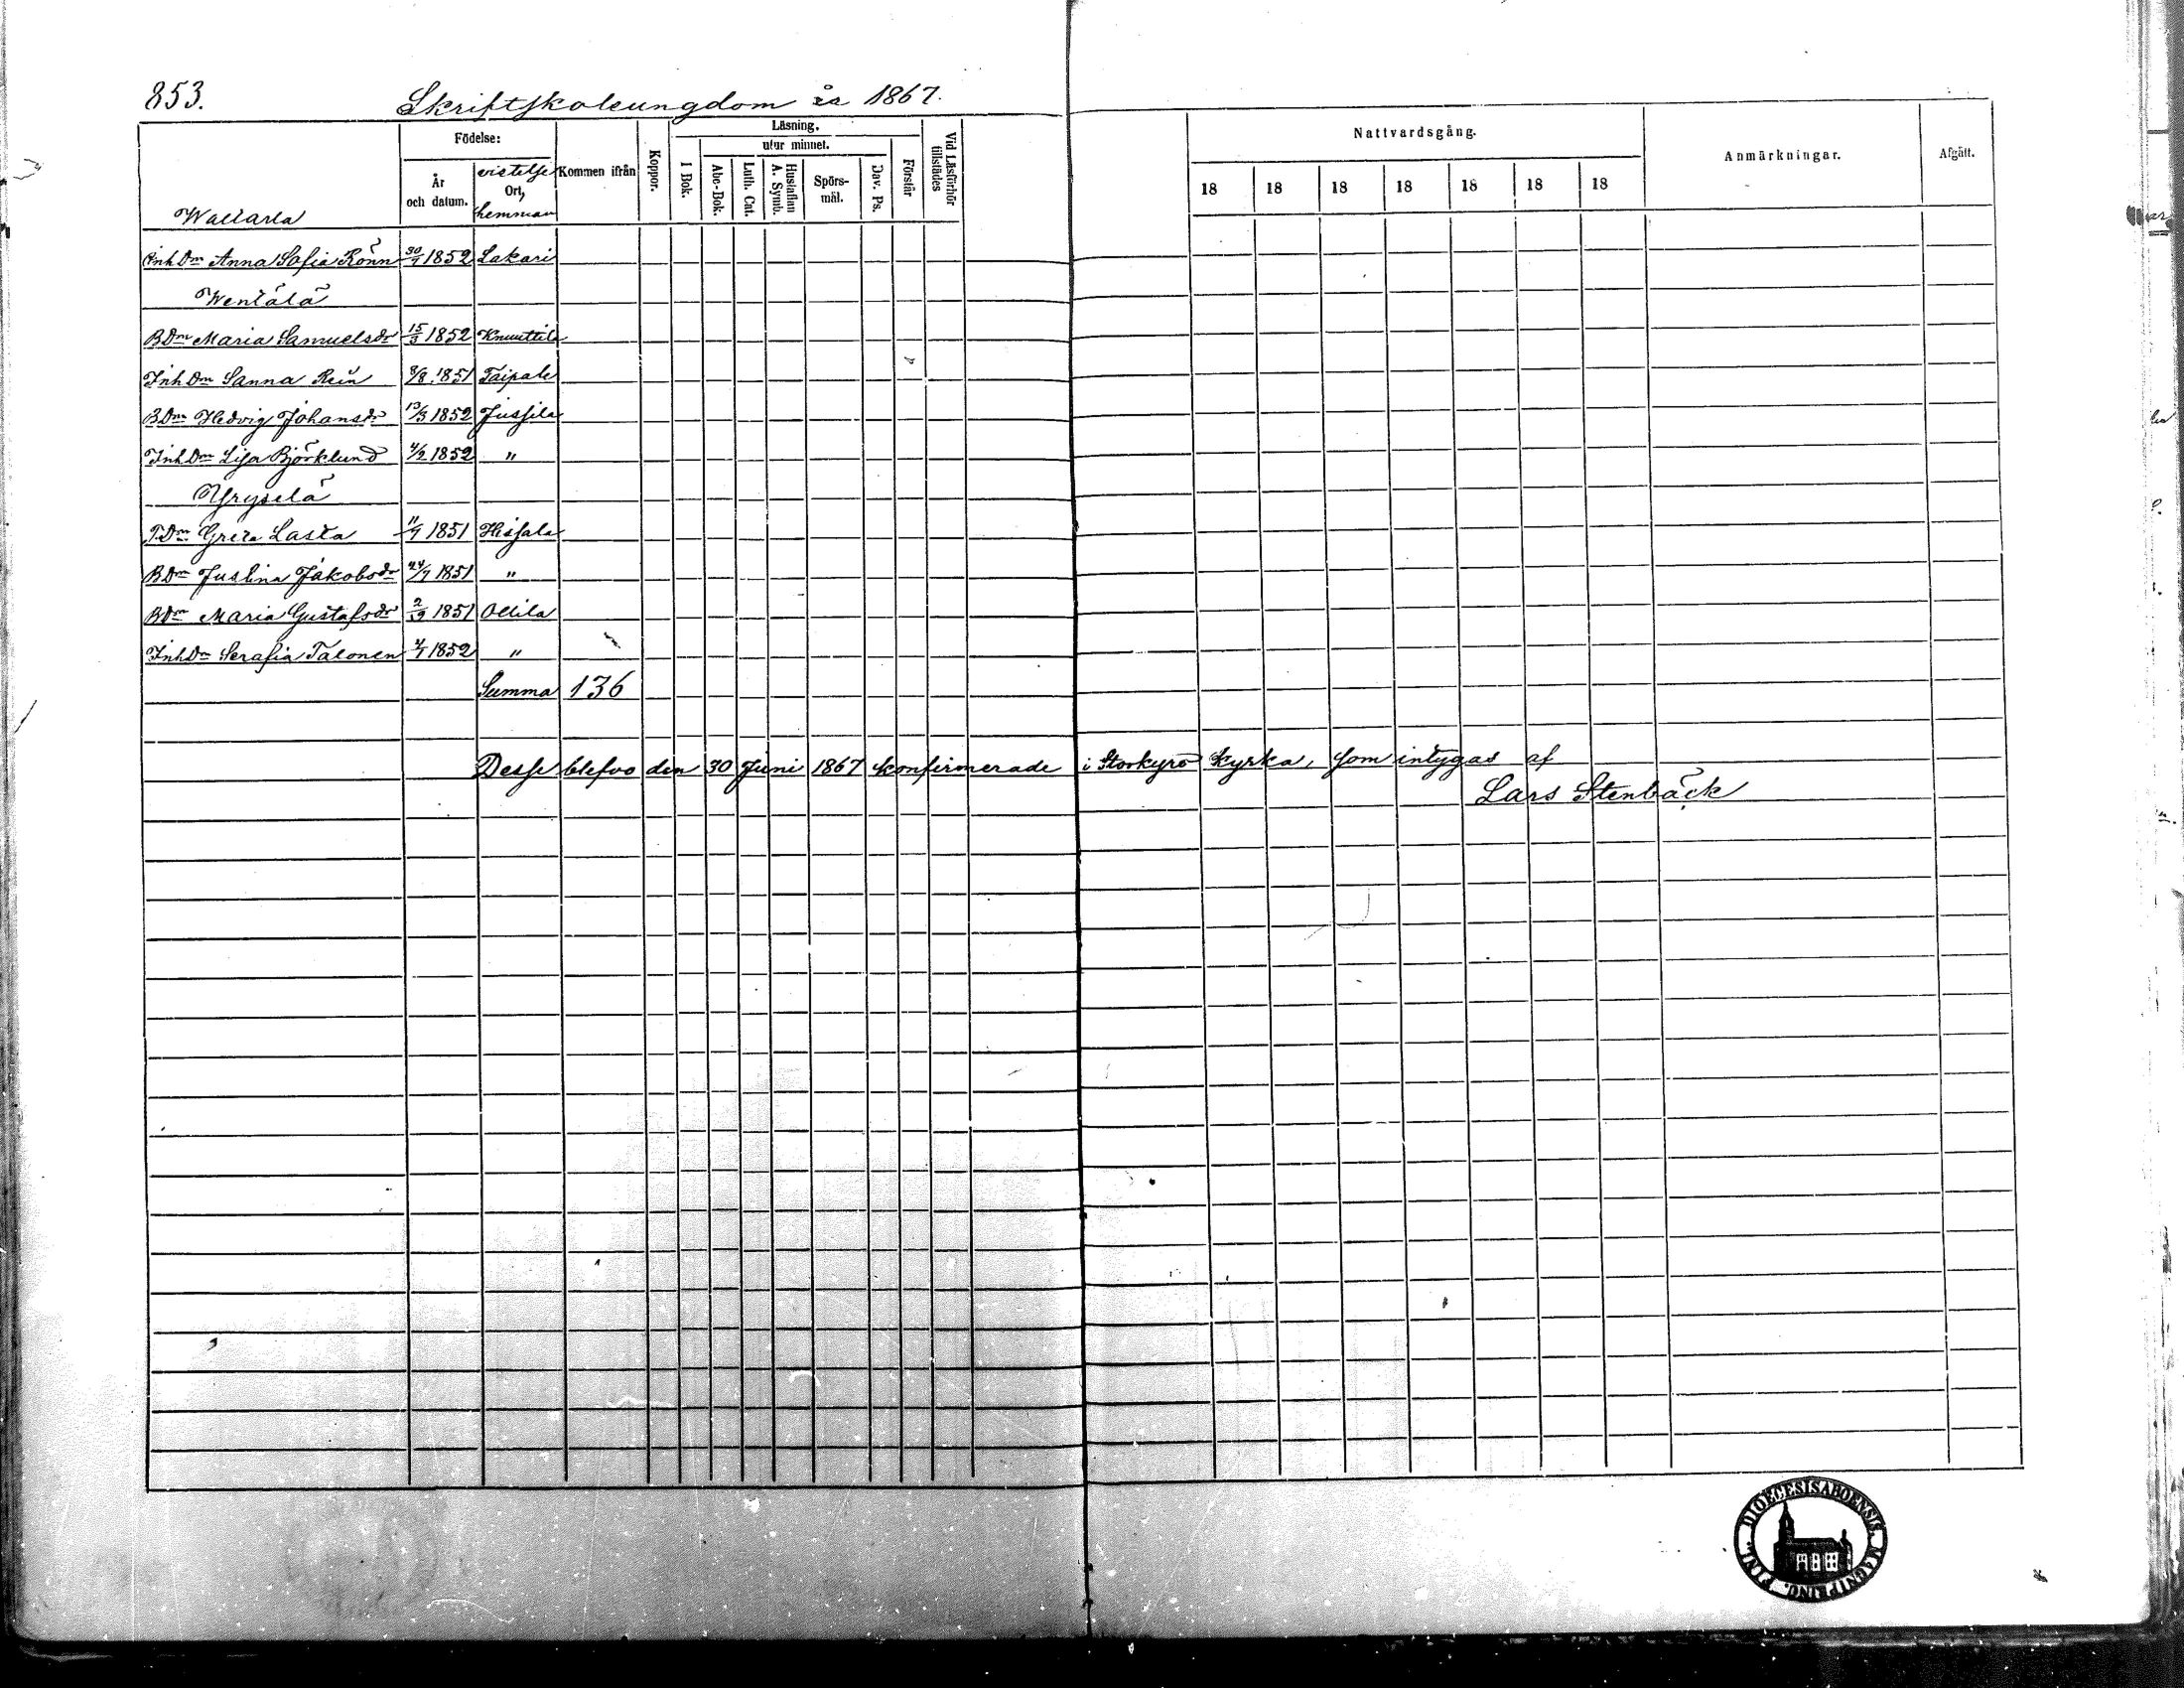 853. Skriftskoleungdom år 1867.
Födelse: Kommen ifrån Koppor. Läsning. Vid Läsförhör tillstädes Nattvardsgång. Anmärkningar. Afgått.
utur minnet.
År och datum. vistelse Ort, hemman I Bok. Abc-Bok. Luth. Cat. Hustaflan A. Symb. Spörs-mål. Dav. Ps. Förstår 18 18 18 18 18 18 18
Wallarla
InhDm Anna Sofia Rönn 30/7 1852 Lakari
Wentälä
BDm Maria Samuelsdr 15/3 1852 Knuuttila
InhDm Sanna Rein 8/8 1851 Taipale
BDm Hedvig Johansdr 13/3 1852 Jussila
InhDm Lisa Björklund 4/2 1852 "
Yryselä
TDm Greta Lasta 11/7 1851 Hissala
BDm Justina Jakobsdr 24/7 1851 "
BDm Maria Gustafsdr 2/9 1851 Ollila
InhDm Serafia Talonen 4/1 1852 "
Summa 136
Desse blefvo den 30 Juni 1867 konfirmerade i Storkyro Kyrka, som intygas af
Lars Stenbäck
DIOECESIS ABOENSIS. MAGNI PRINC. FINL.